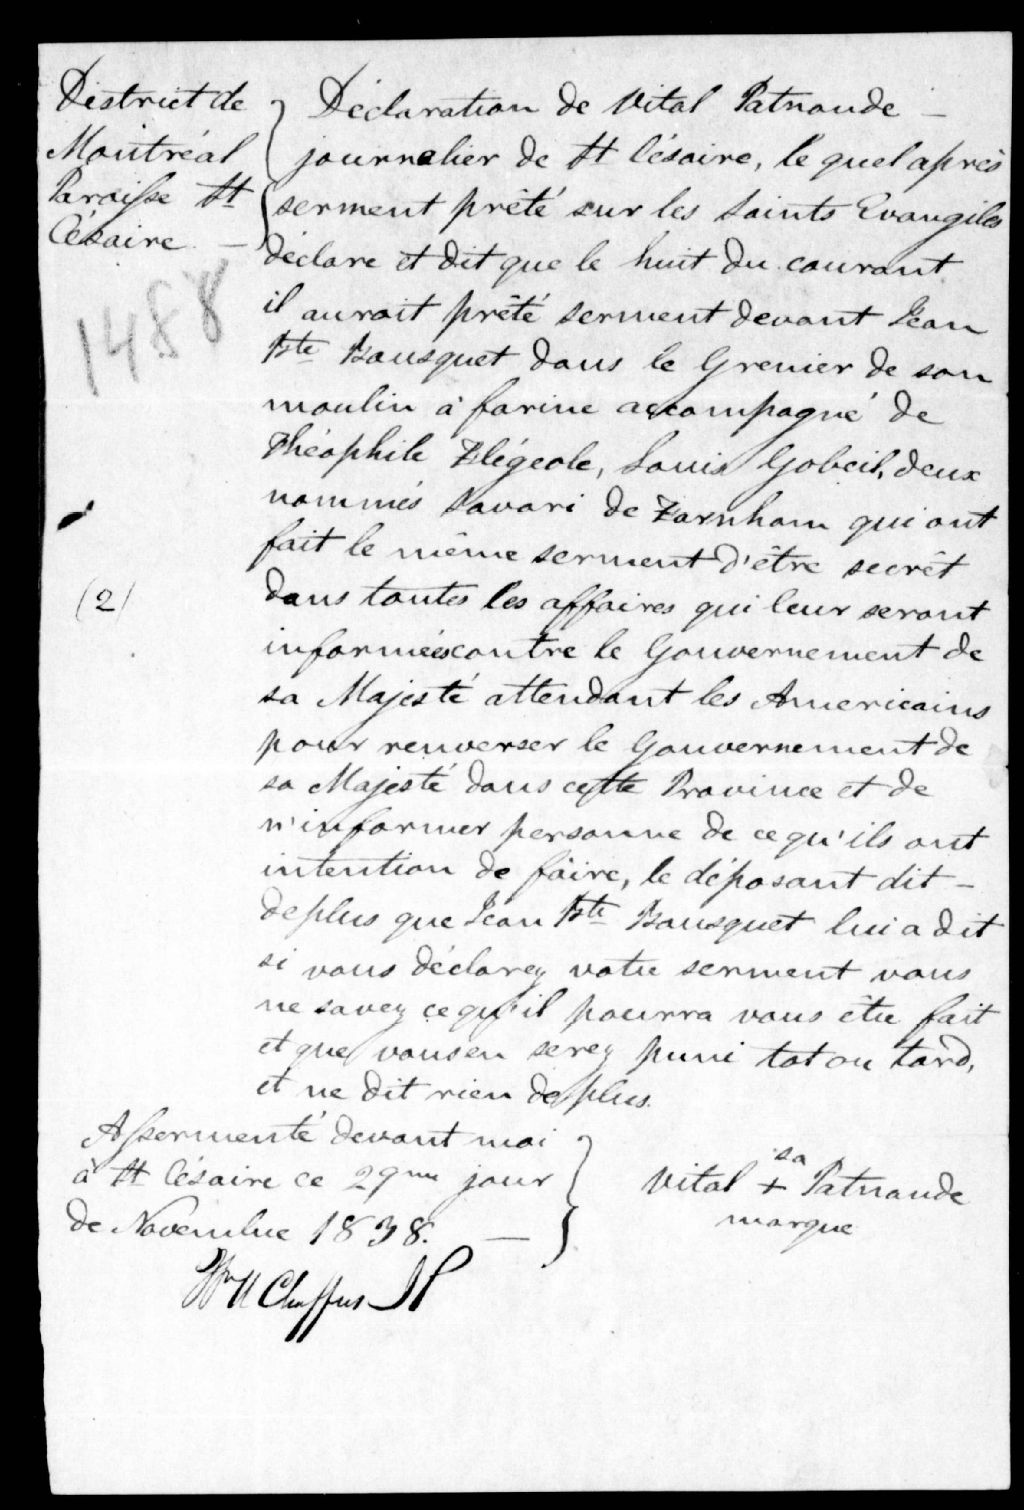 District de
Montréal
Paroisse St
Césaire —
1488
(2)
Déclaration de Vital Patnaude —
journalier de St Césaire, le quel après
serment prêté sur les Saints Evangiles
déclare et dit que le huit du courant
il auroit prêté serment devant Jean
Bte Bousquet dans le Grenier de son
moulin à farine accompagné de
Théophile Flégeole, Louis Gobeil, deux
nommés Savari de Farnham qui ont
fait le même serment d'être secrêt
dans toutes les affaires qui leur seront
informées contre le Gouvernement de
sa Majesté attendant les Americains
pour renverser le Gouvernement de
sa Majesté dans cette Province et de
n'informer personne de ce qu'ils ont
intention de faire, le déposant dit —
deplus que Jean Bte Bousquet lui a dit
si vous déclarez votre serment vous
ne savez ce qu'il pourra vous être fait
et que vous en serez puni tot ou tard,
et ne dit rien de plus.
Assermenté devant moi
à St Césaire ce 29me jour
de Novembre 1838. —
sa
Vital + Patnaude
marque
Wm H Chaffers JP